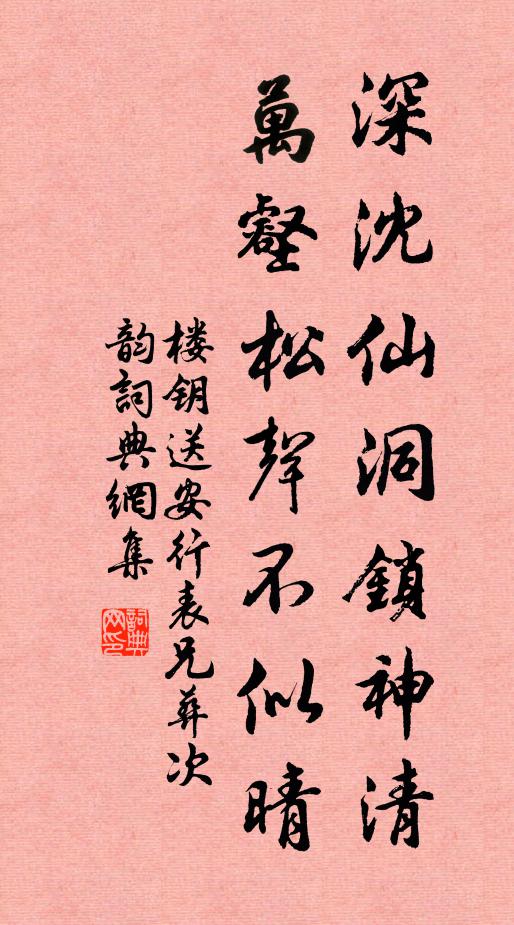 深沈仙洞鎖神清
萬壑松聲不似晴
楼钥送安行表兄葬次
韵詞典網集
詞典网印